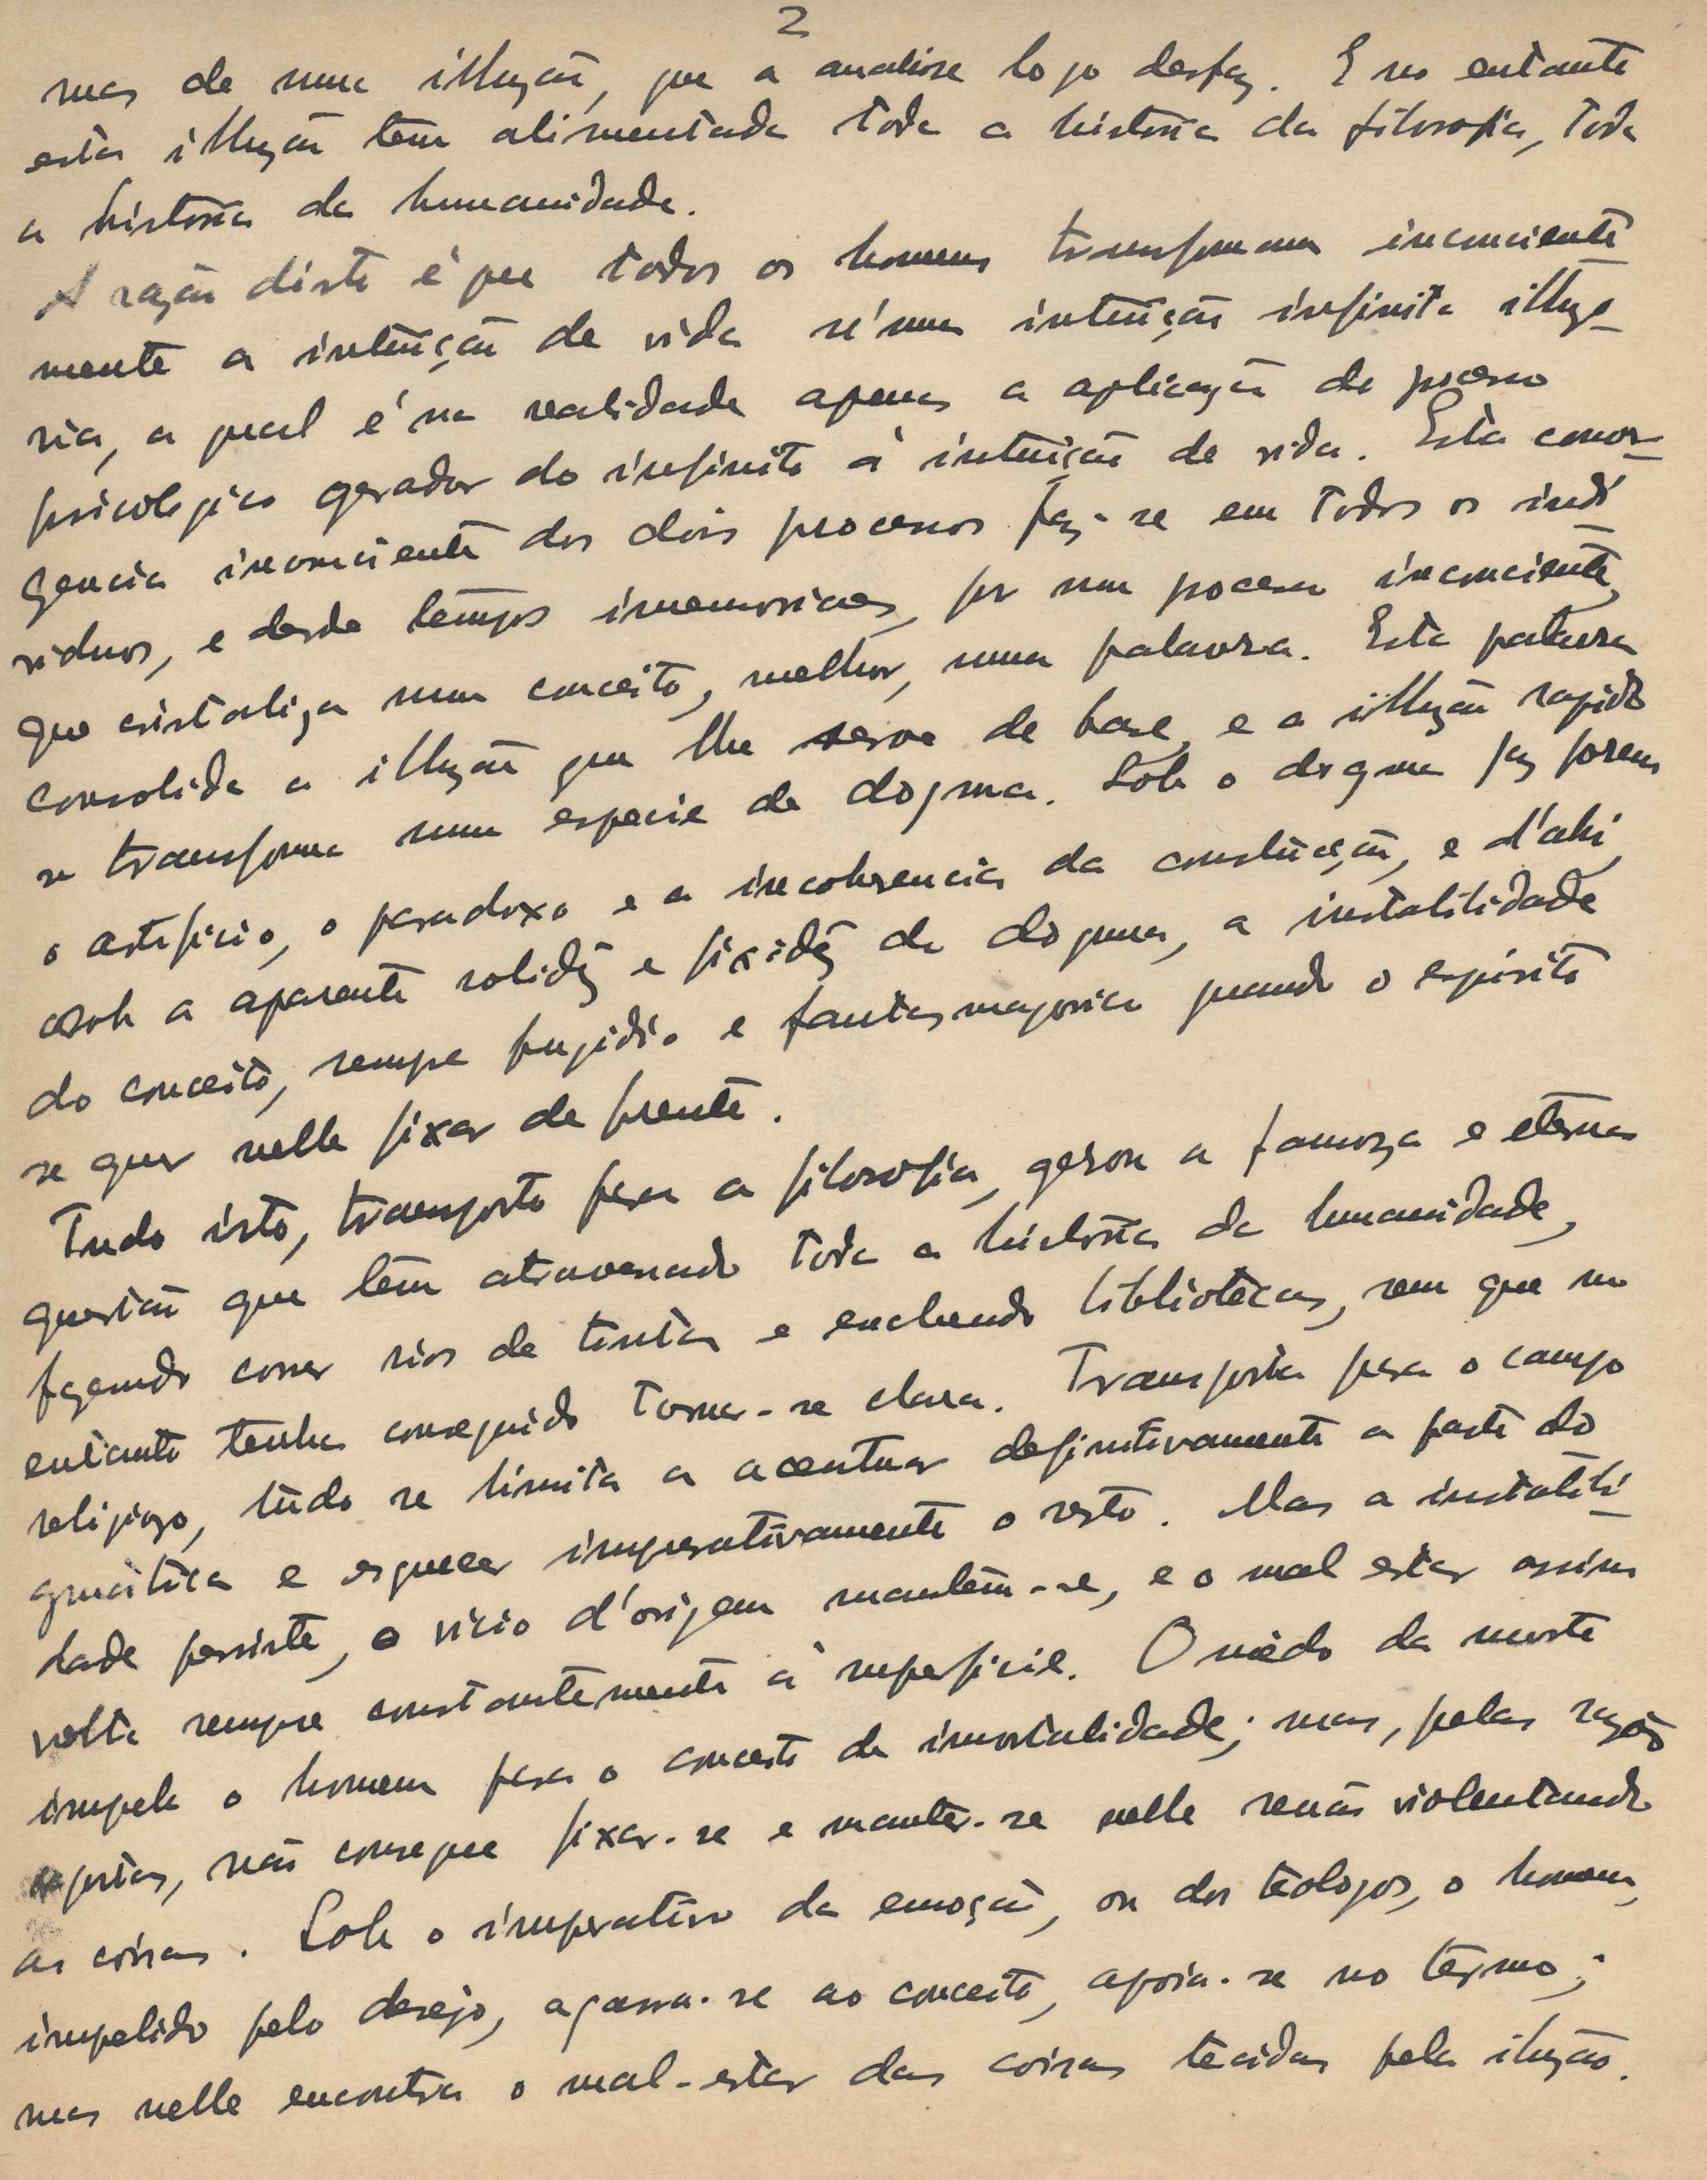 2
mas de uma illuzão, que a analise logo desfaz. E no entanto
esta illuzão tem alimentado toda a historia da filosofia, toda
a historia da humanidade.
A razão disto é que todos os homens transformam inconciente
mente a intuição de vida n'uma intuição infinita illuzo
ria, a qual é na realidade apenas a aplicação do processo
psicologico gerador do infinito á intuição de vida. Esta conver
gencia inconsciente dos dois processos faz-se em todos os indi
viduos, e desde tempos immemoriaes, por um processo inconciente,
que cristaliza num conceito, melhor, numa palavra. Esta palavra
consolida a illuzão que lhe serve de base, e a illuzão rapido
se transforma numa especie de dogma. Sob o dogma jaz porem
o artificio, o paradoxo e a incoherencia da construcção, e d'ahi,
sob a aparente solidez e fixidez do dogma, a instabilidade
do conceito, sempre fugidio e fantasmagorico quando o espirito
se quer nelle fixar de frente.
Tudo isto, transposto para a filosofia, gerou a famoza e eterna
questão que tem atravessado toda a historia da humanidade,
fazendo correr rios de tinta e enchendo bibliotecas, sem que no
entanto tenha conseguido tornar-se clara. Transposta para o campo
religiozo, tudo se limita a acentuar definitivamente a parte do
gmática e esquecer imperativamente o resto. Mas a instabili
dade persiste, o vicio d'origem mantem-se, e o mal estar assim
volta sempre constantemente á superficie. O mêdo da morte
impele o homem para o conceito da imortalidade; mas, pelas razões
expostas, não consegue fixar-se e manter-se nelle senão violentando
as coisas. Sob o imperativo da emoção, ou dos teologos, o homem,
impelido pelo desejo, agarra-se ao conceito, apoia-se no termo;
mas nelle encontra o mal-estar das coisas tecidas pela iluzão.